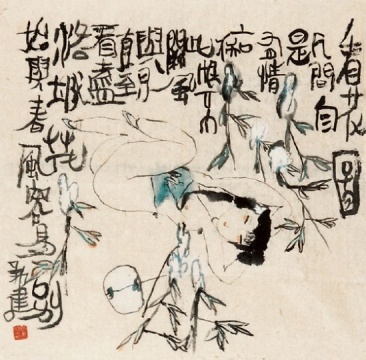 看花図
人間自
是
有情
痴
此恨不
關風
與月
直至
看盡
洛城花
始與春風容易別
新建